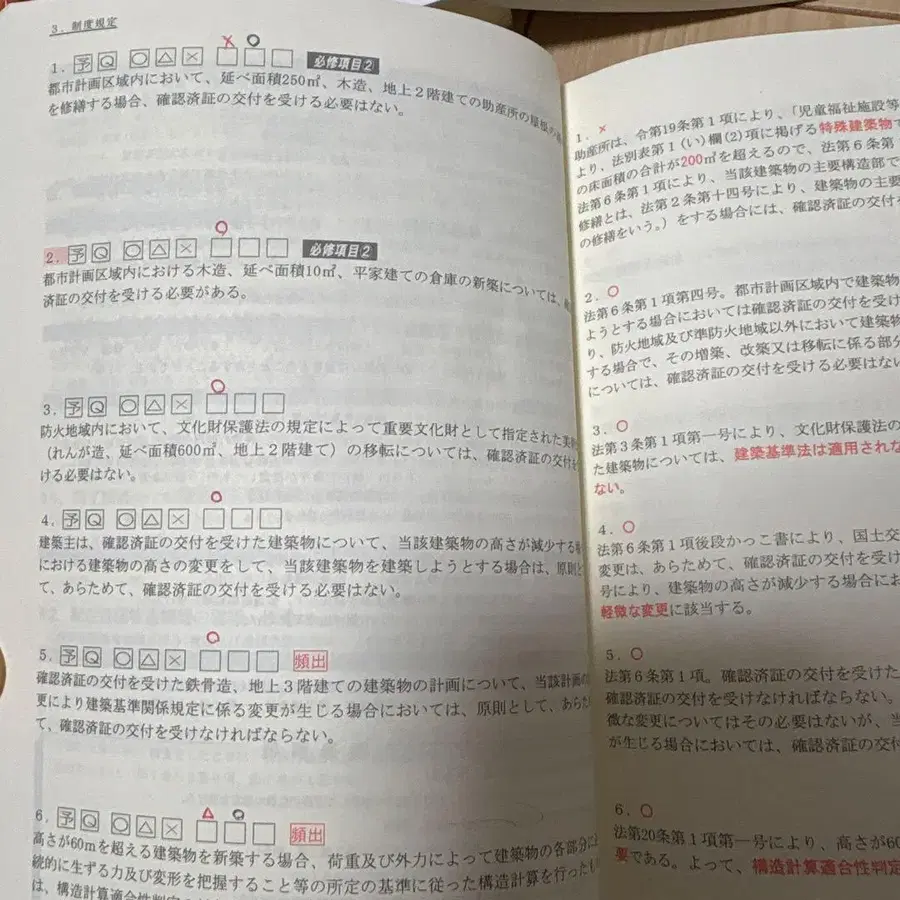 3．制度規定
1．予Q○△× 必修項目②
都市計画区域内において、延べ面積250㎡、木造、地上2階建ての助産所の屋根の
を修繕する場合、確認済証の交付を受ける必要はない。
2．予Q○△× 必修項目②
都市計画区域内における木造、延べ面積10㎡、平家建ての倉庫の新築については、
済証の交付を受ける必要がある。
3．予Q○△×
防火地域内において、文化財保護法の規定によって重要文化財として指定された
（れんが造、延べ面積600㎡、地上2階建て）の移転については、確認済証の交付を
ける必要はない。
4．予Q○△×
建築主は、確認済証の交付を受けた建築物について、当該建築物の高さが減少する
における建築物の高さの変更をして、当該建築物を建築しようとする場合は、原則と
て、あらためて、確認済証の交付を受ける必要はない。
5．予Q○△× 頻出
確認済証の交付を受けた鉄骨造、地上3階建ての建築物の計画について、当該計画の
更により建築基準関係規定に係る変更が生じる場合においては、原則として、あらた
て、確認済証の交付を受けなければならない。
6．予Q○△× 頻出
高さが60mを超える建築物を新築する場合、荷重及び外力によって建築物の各部分に
続的に生ずる力及び変形を把握すること等の所定の基準に従った構造計算を行ったも
は、構造計算適合性判定の
1．×
助産所は、令第19条第1項により、「児童福祉施設等
より、法別表第1（い）欄(2)項に掲げる特殊建築物で
の床面積の合計が200㎡を超えるので、法第6条第1
法第6条第1項により、当該建築物の主要構造部で
修繕とは、法第2条第十四号により、建築物の主要
の修繕をいう。）をする場合には、確認済証の交付を
2．○
法第6条第1項第四号。都市計画区域内で建築物
ようとする場合においては確認済証の交付を受け
り、防火地域及び準防火地域以外において建築物
する場合で、その増築、改築又は移転に係る部分
については、確認済証の交付を受ける必要はない
3．○
法第3条第1項第一号により、文化財保護法の
た建築物については、建築基準法は適用されな
ない。
4．○
法第6条第1項後段かっこ書により、国土交
変更は、あらためて、確認済証の交付を受け
号により、建築物の高さが減少する場合にお
軽微な変更に該当する。
5．○
法第6条第1項。確認済証の交付を受けた
確認済証の交付を受けなければならない。
微な変更についてはその必要はないが、当
が生じる場合においては、確認済証の交付
6．○
法第20条第1項第一号により、高さが60
要である。よって、構造計算適合性判定